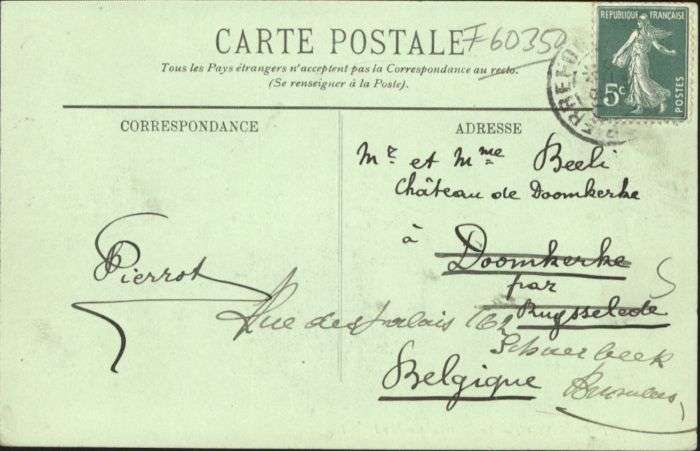 CARTE POSTALE
F60350
Tous les Pays étrangers n'acceptent pas la Correspondance au recto.
(Se renseigner à la Poste).
REPUBLIQUE FRANÇAISE
5c
POSTES
PIERREFON
CORRESPONDANCE
ADRESSE
Mr et Mme Beeli
Château de Doomkerke
à
Doomkerke
par
Ruysselede
Pierrot
Rue des Palais 162
Schaerbeek
Belgique
Bruxelles